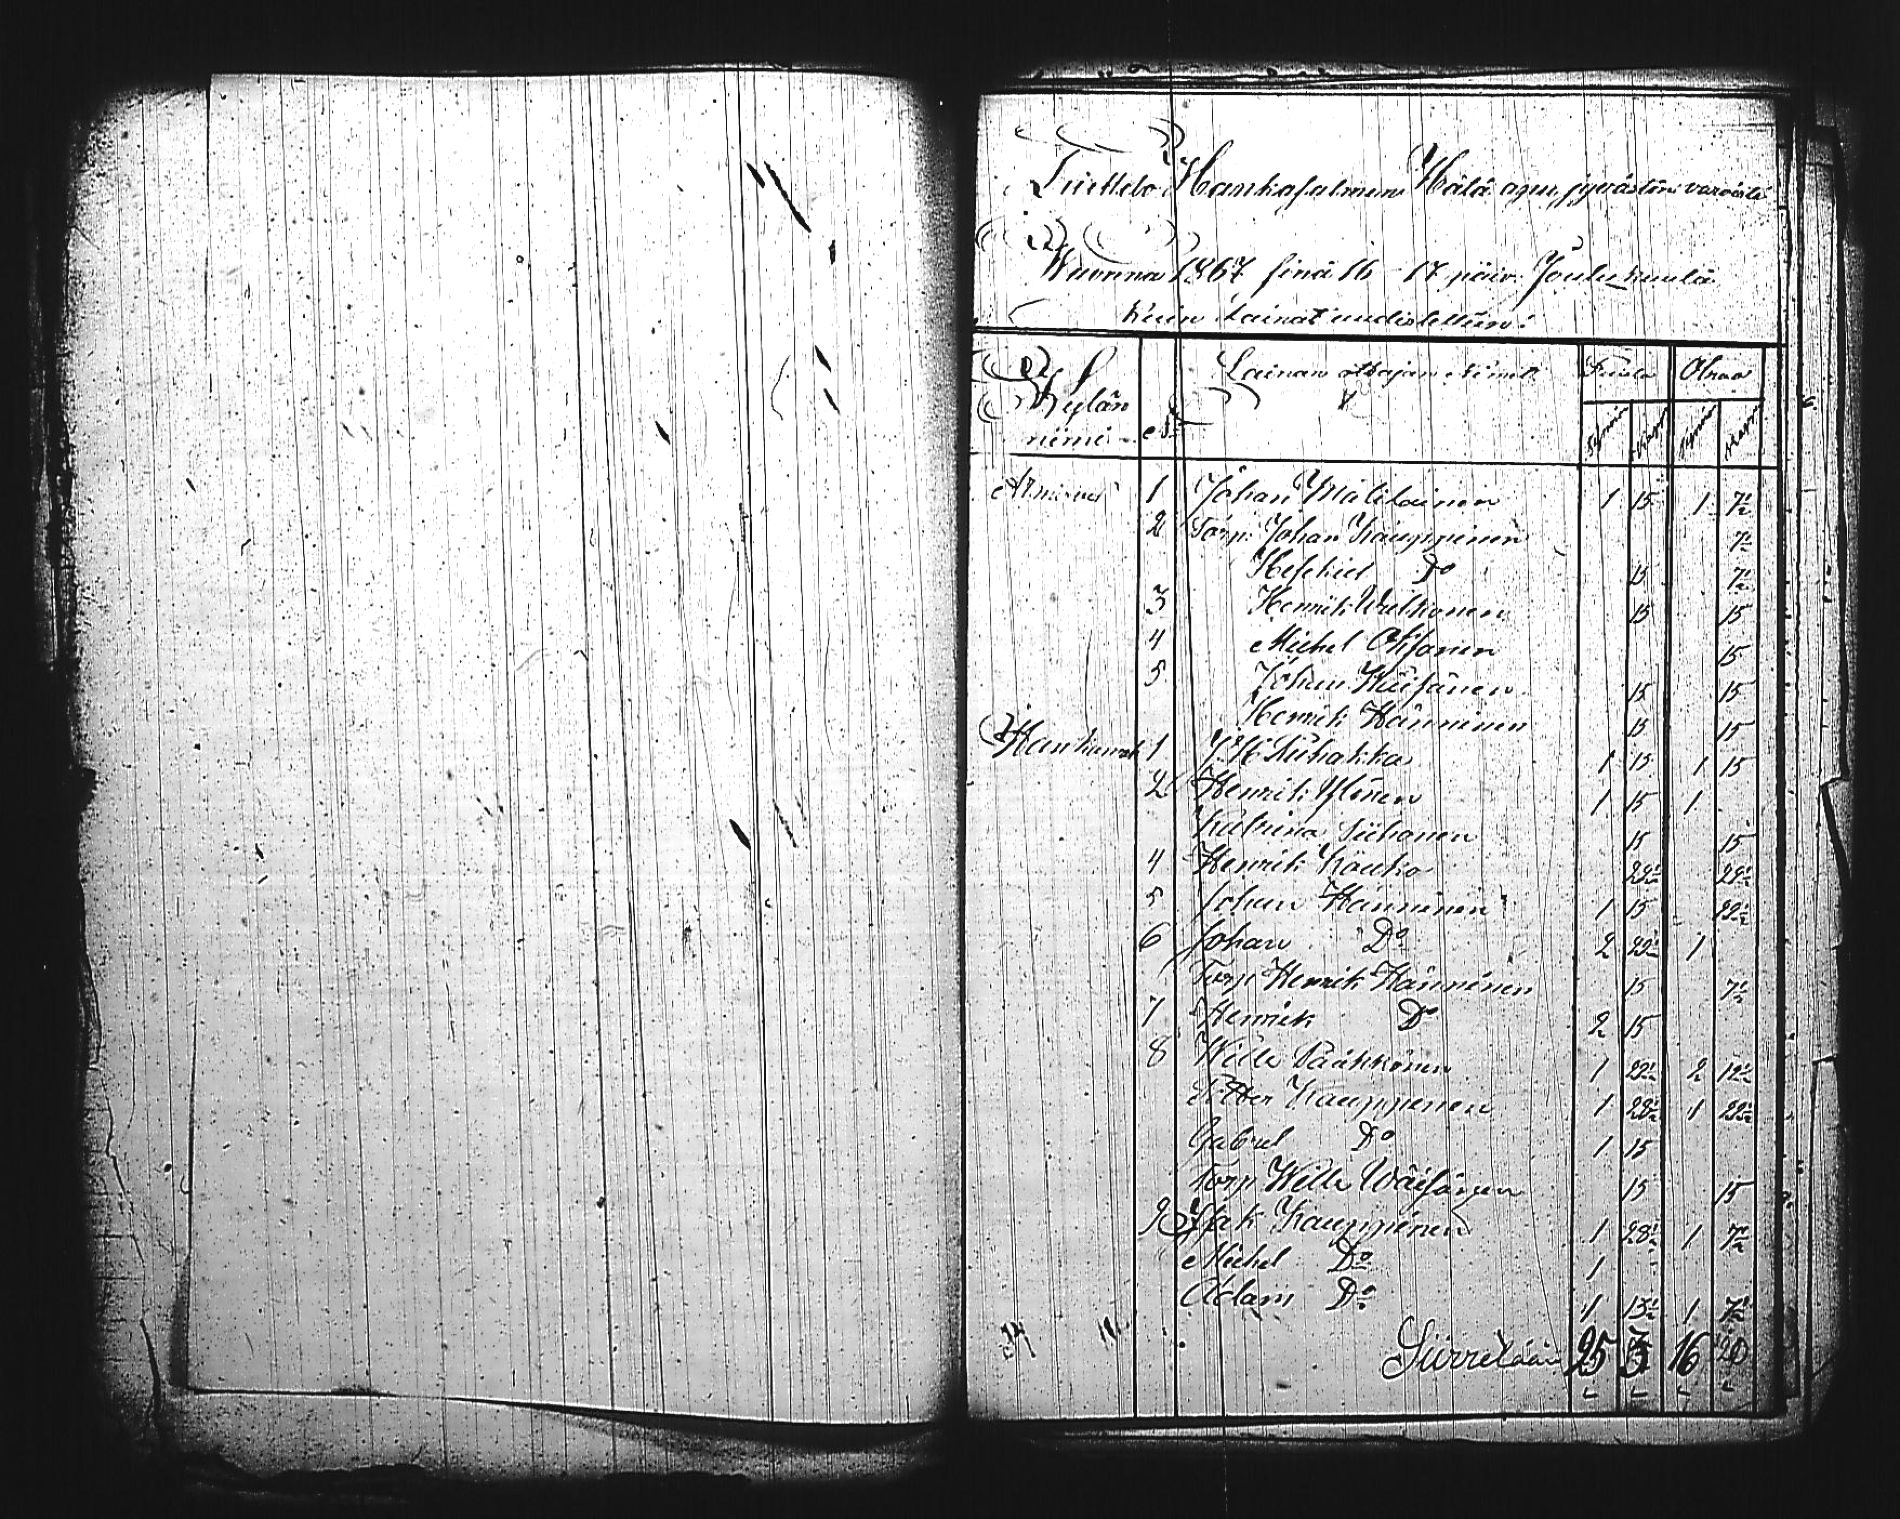 Luettelo Hankasalmen Hätä apu jyvästön varoista
Wuonna 1867 sinä 16 - 17 päiv. Joulu_kuulä
kuin Lainat uudistettiin:
Kylän nimi No Lainan ottajan Nimet Ruista Ohraa
Tynnöri Kappa Tynnöri Kappa
Armisvesi 1 Johan Matilainen 1 15 1 7½
2 Torp. Johan Kauppinen 7½
Hesekiel Do 15 7½
3 Henrik Wilkonen 15 15
4 Michel Ohisanen 15
5 Johan Käisänen 15 15
Henrik Hänninen 15 15
Hankavesi 1 J. H. Kuhakka 1 15 1 15
2 Henrik Ylönen 1 15 1
Katrina Liihanen 15 15
4 Henrik Kauko 22½ 22½
5 Johan Hänninen 1 15 22½
6 Johan Do 2 22½ 1
Torp Henrik Hänninen 15 7½
7 Henrik Do 2 15
8 Wille Pääkkönen 1 22½ 2 12½
Petter Kauppinen 1 22½ 1 22½
Gabriel Do 1 15
Torp Wille Wäisänen 15 15
9 Isak Kauppinen 1 28½ 1 7½
Michel Do 1
Adam Do 1 15½ 1 7½
Siirretään 25 3 16 20